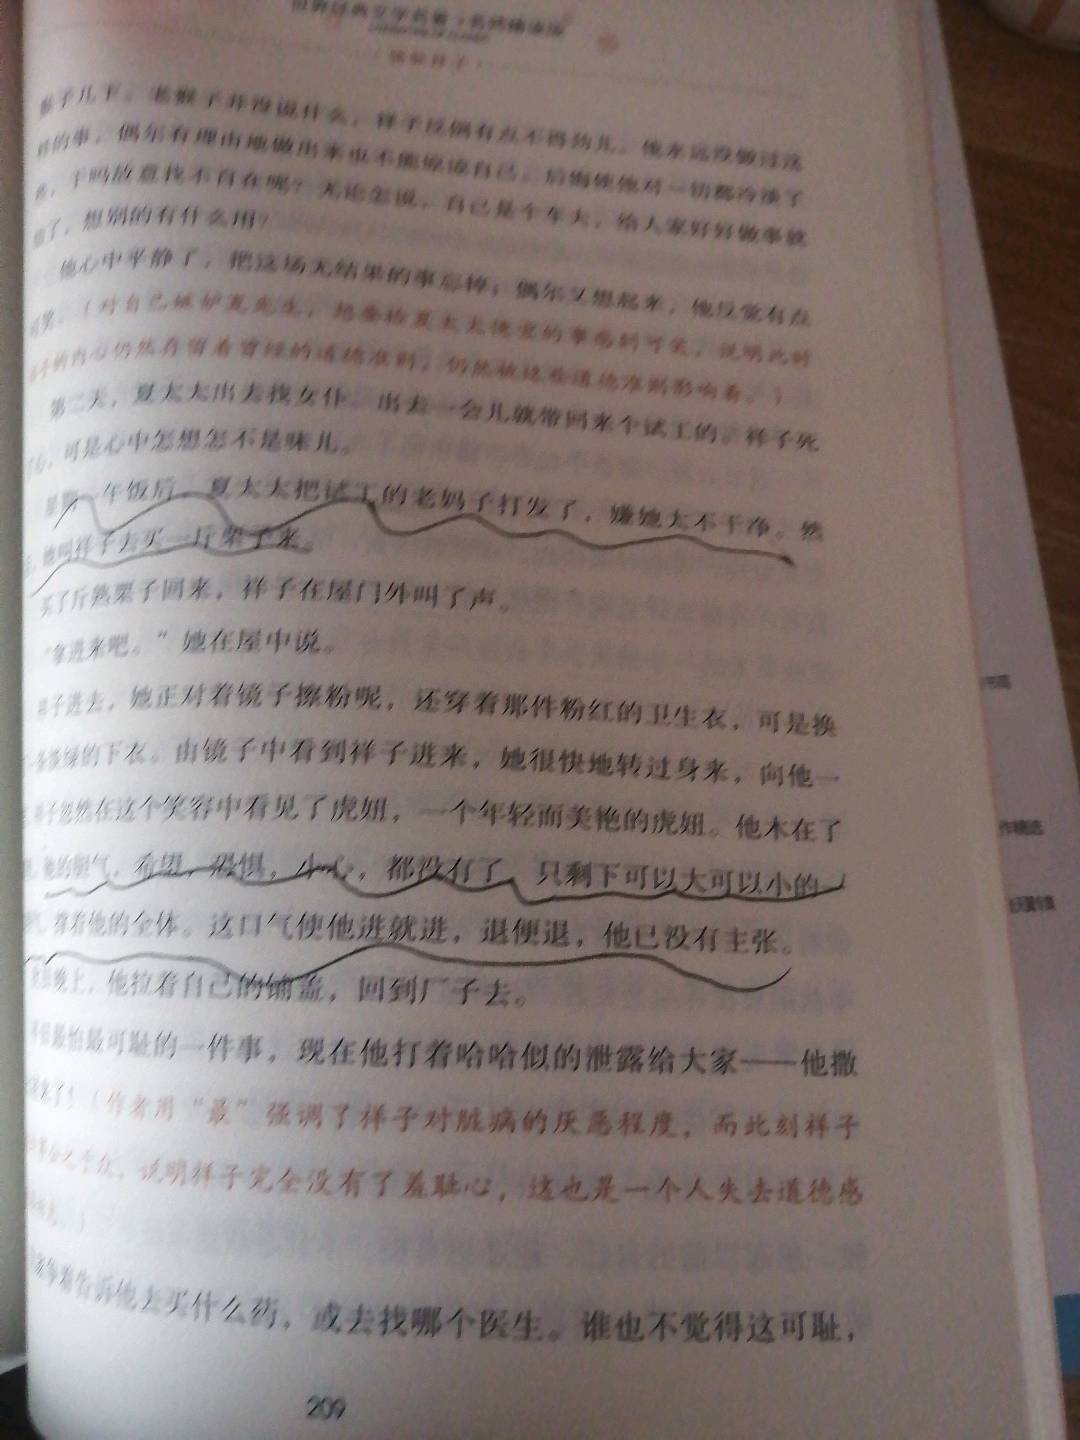 世界经典文学名著·名师精读版
骆驼祥子
猴子几下。老猴子并没说什么，祥子反倒有点不得劲儿。他永远没做过这
样的事，偶尔有理由地做出来也不能原谅自己。后悔使他对一切都冷淡了
些，干吗故意找不自在呢？无论怎说，自己是个车夫，给人家好好做事就
想别的有什么用？
他心中平静了，把这场无结果的事忘掉；偶尔又想起来，他反觉有点
可笑。（对自己嫉妒夏先生，
内心仍然存留着曾经的道德准则，仍然被这些道德准则影响着。）
第二天，夏太太出去找女仆。出去一会儿就带回来个试工的。祥子死
了心，可是心中怎想怎不是味儿。
星期一午饭后，夏太太把试工的老妈子打发了，嫌她太不干净。然
她叫祥子去买一斤栗子来。
买了斤熟栗子回来，祥子在屋门外叫了声。
“拿进来吧。”她在屋中说。
祥子进去，她正对着镜子擦粉呢，还穿着那件粉红的卫生衣，可是换
淡绿的下衣。由镜子中看到祥子进来，她很快地转过身来，向他一
祥子忽然在这个笑容中看见了虎妞，一个年轻而美艳的虎妞。他木在了
他的胆气，希望，恐惧，小心，都没有了，只剩下可以大可以小的一
着他的全体。这口气使他进就进，退便退，他已没有主张。
晚上，他拉着自己的铺盖，回到厂子去。
最怕最可耻的一件事，现在他打着哈哈似的泄露给大家——他撒
来了！（作者用“最”强调了祥子对脏病的厌恶程度，而此刻祥子
公之于众，说明祥子完全没有了羞耻心，这也是一个人失去道德感
争着告诉他去买什么药，或去找哪个医生。谁也不觉得这可耻，
209